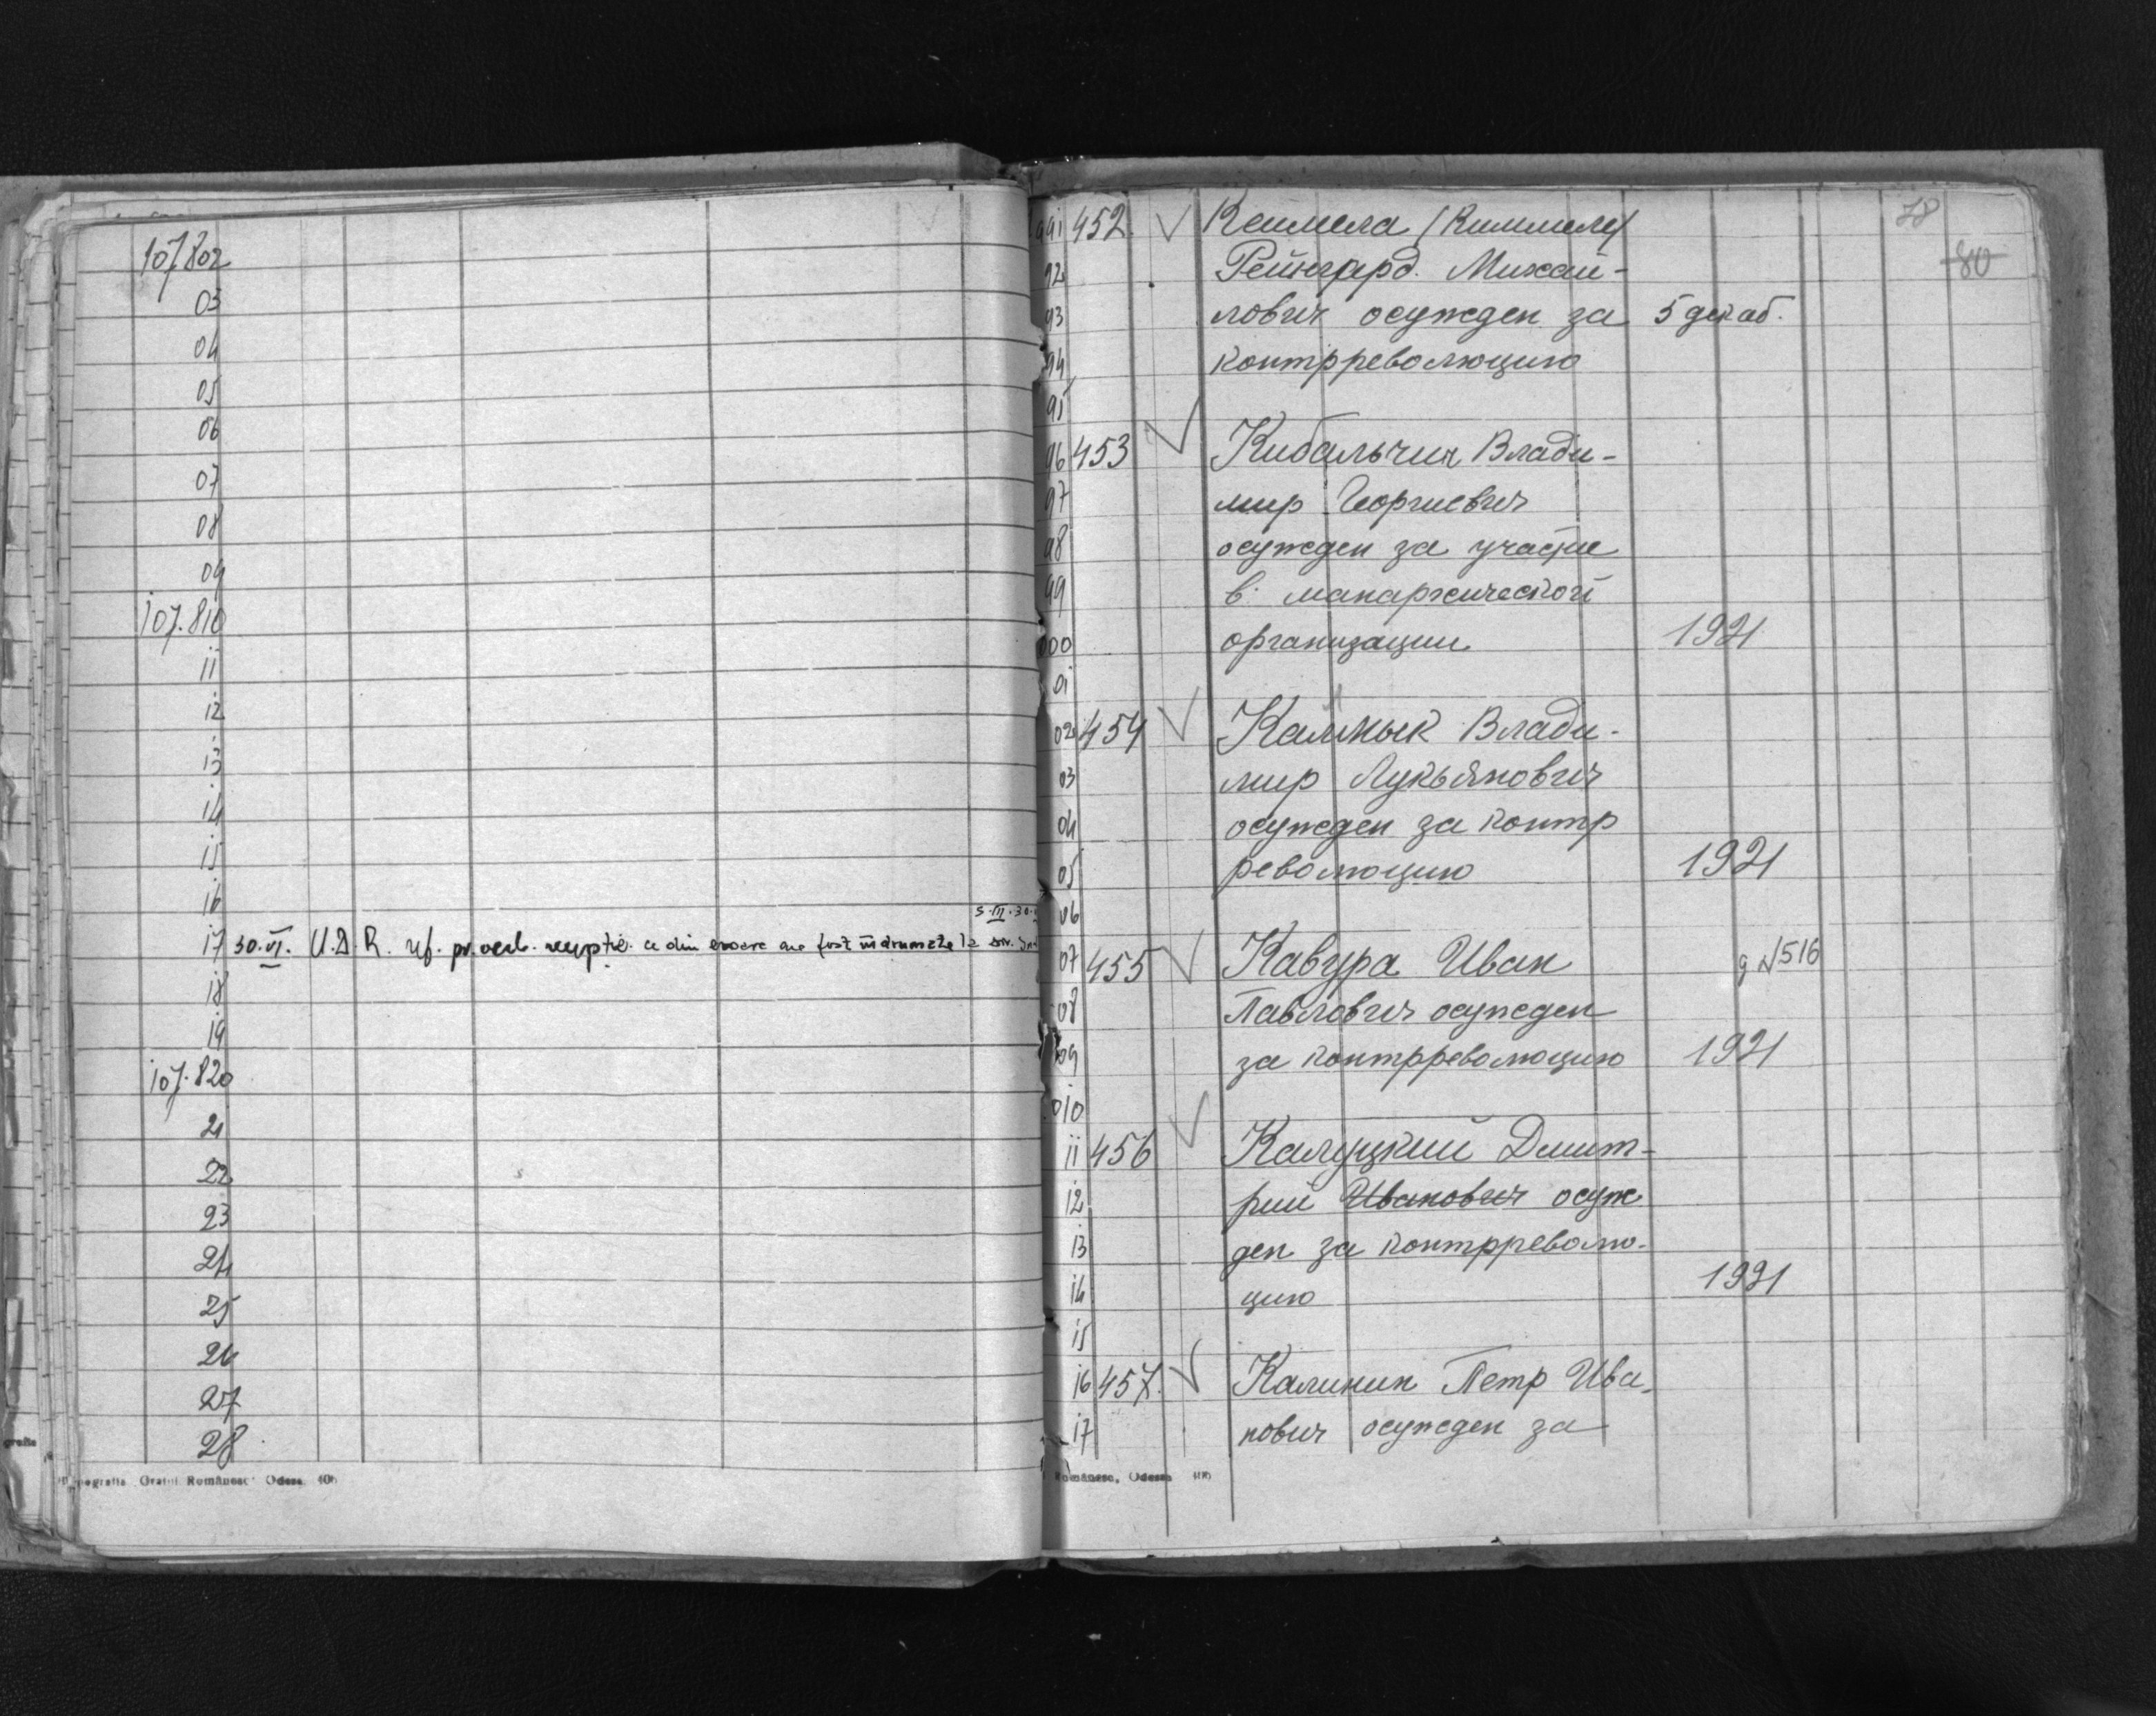 107.802
03
04
05
06
07
08
09
107.810
11
12
13
14
15
16
17 30.VI. U.D.R. ref. pr. verb. recepție ce din eroare au fost îndrumate la
18
19
107.820
21
22
23
24
25
26
27
28
Odesa 406
78
80
991 452. Кеммела /Киммель/
92 Рейнгард Михай-
93 лович осужден за 5 декаб.
94 контрреволюцию
95
96 453 Кибальчич Влади-
97 мир Георгиевич
98 осужден за участие
99 в манархической
000 организации 1921
01
02 454 Калмык Влади-
03 мир Лукьянович
04 осужден за контр
05 революцию 1921
06
07 455 Кавура Иван д N516
08 Павлович осужден
09 за контрреволюцию 1921
010
11 456 Калуцкий Дмит-
12 рий Иванович осуж
13 ден за контрреволю-
14 цию 1921
15
16 457. Калинин Петр Ива-
17 нович осужден за
Românesc, Odessa 406